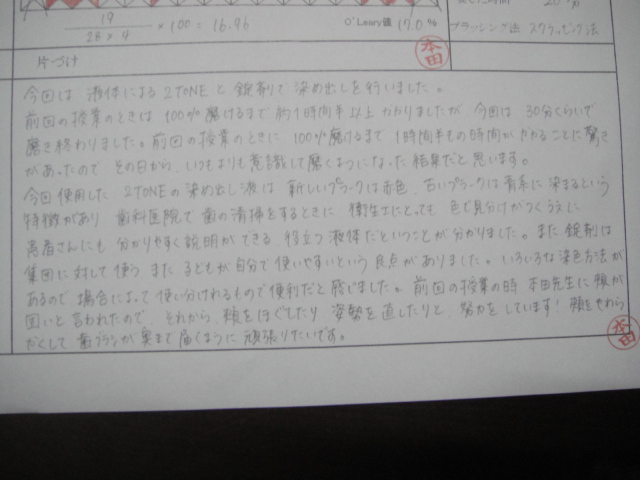 19
28×4 ×100 = 16.96
O'Leary値 17.0 %
20
ブラッシング法 スクラッピング法
片づけ
本田
今回は 液体による 2TONE と 錠剤で 染め出しを行いました。
前回の授業のときは 100% 磨けるまで 約1時間半以上かかりましたが、今回は 30分くらいで
磨き終わりました。前回の授業のときに、100%磨けるまで 1時間半もの時間がかかることに驚き
があったので その日から、いつもよりも意識して磨くようになった結果だと思います。
今回使用した 2TONEの染め出し液は 新しいプラークは赤色、古いプラークは青系に染まるという
特徴があり 歯科医院で 歯の清掃をするときに 衛生士にとっても 色で見分けがつくうえに
患者さんにも 分かりやすく説明ができる 役立つ液体だということが分かりました。また 錠剤は
集団に対して使う、また 子どもが自分で使いやすいという 良点がありました。いろいろな染色方法が
あるので 場合によって使い分けれるもので便利だと感じました。前回の授業の時 本田先生に 頬が
固いと言われたので、それから、頬をほぐしたり 姿勢を直したりと 努力をしています! 頬をやわら
かくして 歯ブラシが奥まで届くように 頑張りたいです。
本田